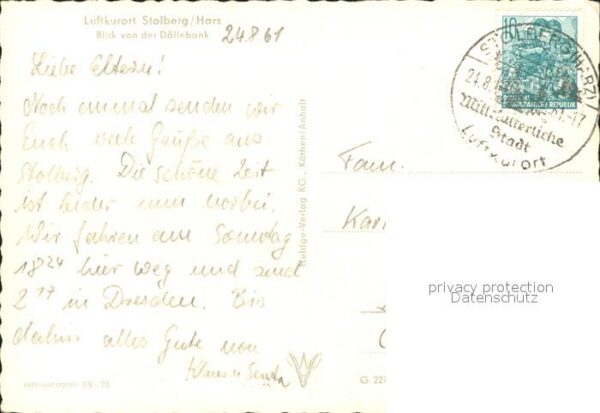 Luftkurort Stolberg/Harz
Blick von der Döllebank
24.8.61
Liebe Eltern!
Noch einmal senden wir
Euch viele Grüße aus
Stolberg. Die schöne Zeit
ist leider nun vorbei.
Wir fahren am Sonntag
18 24 hier weg und sind
2 17 in Dresden. Bis
dahin alles Gute von
Klaus u. Senta
Heldge-Verlag KG., Köthen/Anhalt
10
STOLBERG (HARZ)
24.8.61.-17
Mittelalterliche
Stadt
Luftkurort
Fam.
Kar
privacy protection
Datenschutz
Verbraucherpreis DM -.20